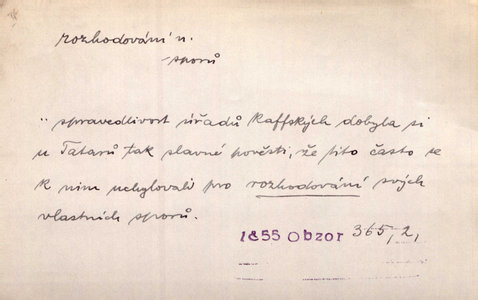 rozhodování n.
sporů
„spravedlivost úřadů Kaffských dobyla si
u Tatarů tak slavné pověsti, že tito často se
k nim uchylovali pro rozhodování svých
vlastních sporů.
1855 Obzor 365, 2,